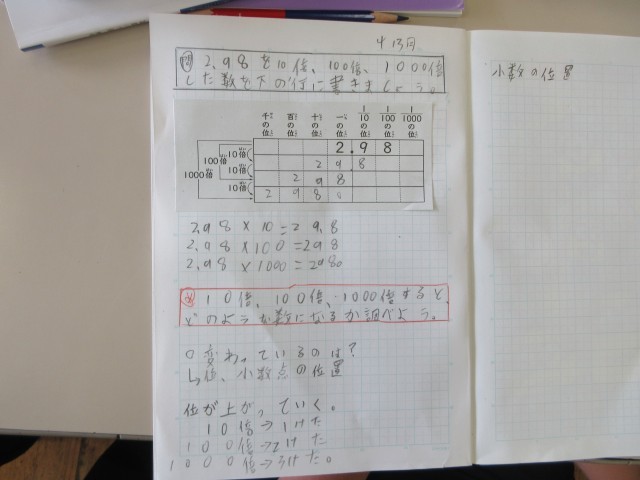 4 13回
問 2.98を10倍、100倍、1000倍
した数を下の行に書きましょう。
千の位 百の位 十の位 一の位 1/10の位 1/100の位 1/1000の位
2.98
10倍 29.8
100倍 10倍 298
1000倍 10倍 2980
2.98×10=29.8
2.98×100=298
2.98×1000=2980
め 10倍、100倍、1000倍すると、
どのような数になるか調べよう。
○変わっているのは?
↳位、小数点の位置
位が上がっていく。
10倍→1けた
100倍→2けた
1000倍→3けた。
小数の位置